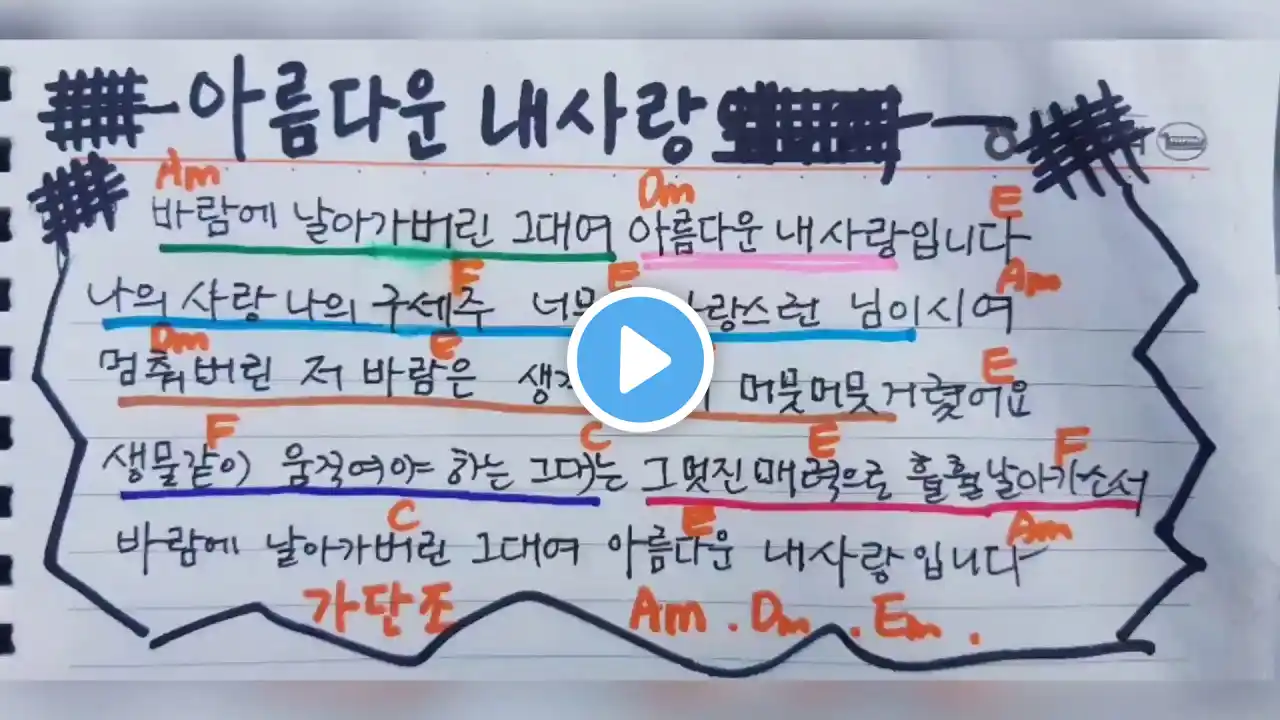 아름다운 내사랑
Am Dm E
바람에 날아가버린 그대여 아름다운 내사랑입니다
F E Am
나의 사랑 나의 구세주 랑스런 님이시여
Dm E E
멈춰버린 저 바람은 머뭇머뭇거렸어요
F C E F
생물같이 움직여야 하는 그대는 그 멋진 매력으로 훨훨날아가소서
C E Am
바람에 날아가버린 그대여 아름다운 내사랑입니다
가단조 Am . Dm . Em .